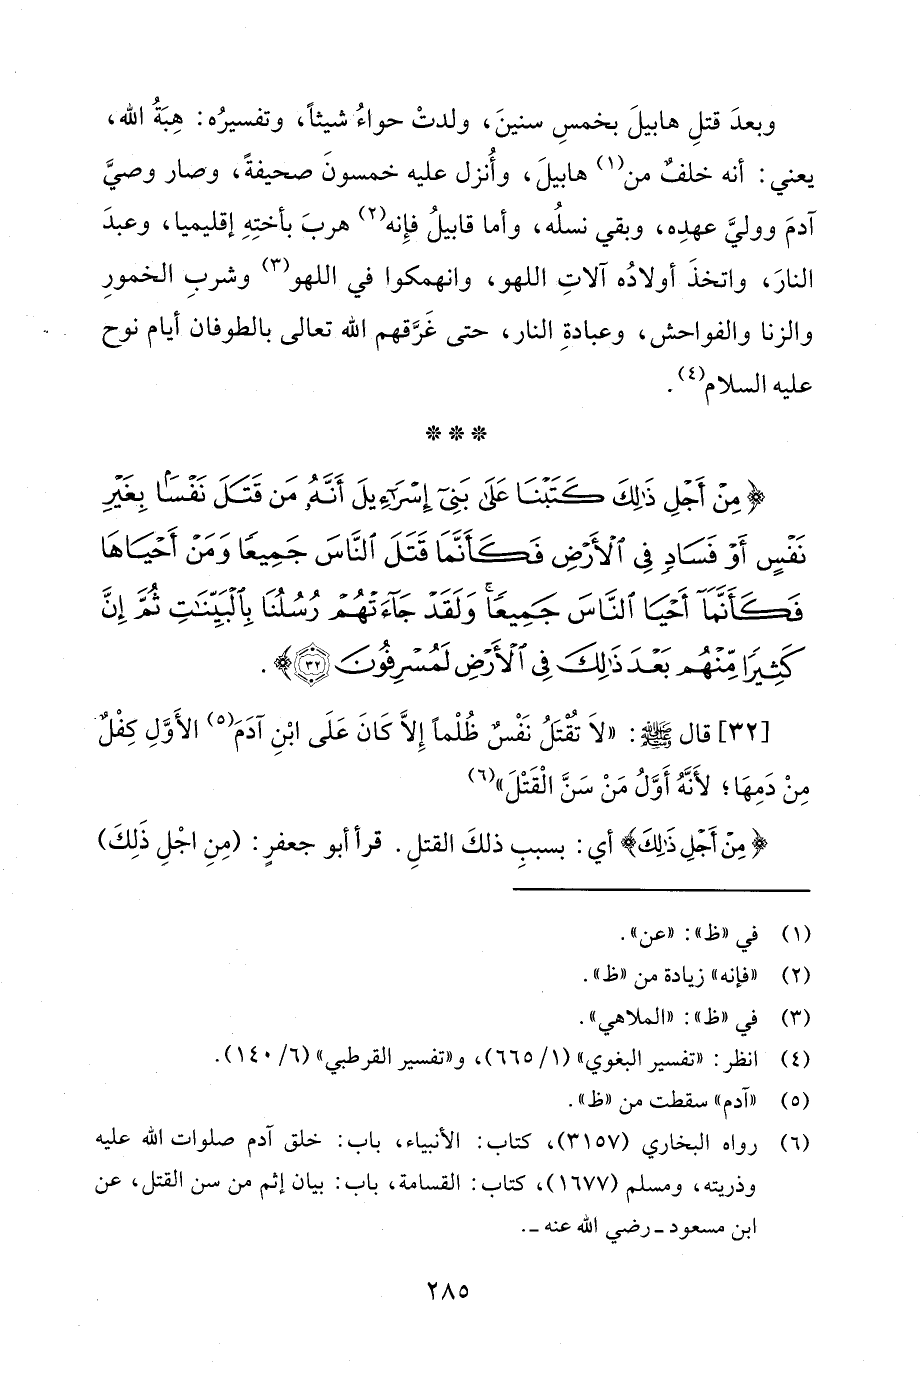 وبعدَ قتلِ هابيلَ بخمسِ سنينَ، ولدتْ حواءُ شيثاً، وتفسيرُه: هِبَةُ الله،
يعني: أنه خلفٌ من(١) هابيلَ، وأُنزل عليه خمسونَ صحيفةً، وصار وصيَّ
آدمَ ووليَّ عهدِه، وبقي نسلُه، وأما قابيلُ فإنه(٢) هربَ بأختِهِ إقليميا، وعبدَ
النارَ، واتخذَ أولادُه آلاتِ اللهو، وانهمكوا في اللهو(٣) وشربِ الخمورِ
والزنا والفواحش، وعبادةِ النار، حتى غَرَّقهم الله تعالى بالطوفان أيام نوح
عليه السلام(٤).
* * *
﴿مِنْ أَجْلِ ذَٰلِكَ كَتَبْنَا عَلَىٰ بَنِىٓ إِسْرَٰٓءِيلَ أَنَّهُۥ مَن قَتَلَ نَفْسًۢا بِغَيْرِ
نَفْسٍ أَوْ فَسَادٍ فِى ٱلْأَرْضِ فَكَأَنَّمَا قَتَلَ ٱلنَّاسَ جَمِيعًا وَمَنْ أَحْيَاهَا
فَكَأَنَّمَآ أَحْيَا ٱلنَّاسَ جَمِيعًاۚ وَلَقَدْ جَآءَتْهُمْ رُسُلُنَا بِٱلْبَيِّنَٰتِ ثُمَّ إِنَّ
كَثِيرًا مِّنْهُم بَعْدَ ذَٰلِكَ فِى ٱلْأَرْضِ لَمُسْرِفُونَ ٣٢﴾.
[٣٢] قال ﷺ: «لاَ تُقْتَلُ نَفْسٌ ظُلْماً إِلاَّ كَانَ عَلَى ابْنِ آدَمَ(٥) الأَوَّلِ كِفْلٌ
مِنْ دَمِهَا؛ لأَنَّهُ أَوَّلُ مَنْ سَنَّ الْقَتْلَ»(٦)
﴿مِنْ أَجْلِ ذَٰلِكَ﴾ أي: بسببِ ذلكَ القتلِ. قرأ أبو جعفرٍ: (مِنِ اجْلِ ذَلِكَ)
(١) في «ظ»: «عن».
(٢) «فإنه» زيادة من «ظ».
(٣) في «ظ»: «الملاهي».
(٤) انظر: «تفسير البغوي» (١/ ٦٦٥)، و«تفسير القرطبي» (٦/ ١٤٠).
(٥) «آدم» سقطت من «ظ».
(٦) رواه البخاري (٣١٥٧)، كتاب: الأنبياء، باب: خلق آدم صلوات الله عليه
وذريته، ومسلم (١٦٧٧)، كتاب: القسامة، باب: بيان إثم من سن القتل، عن
ابن مسعود ـ رضي الله عنه ـ.
٢٨٥